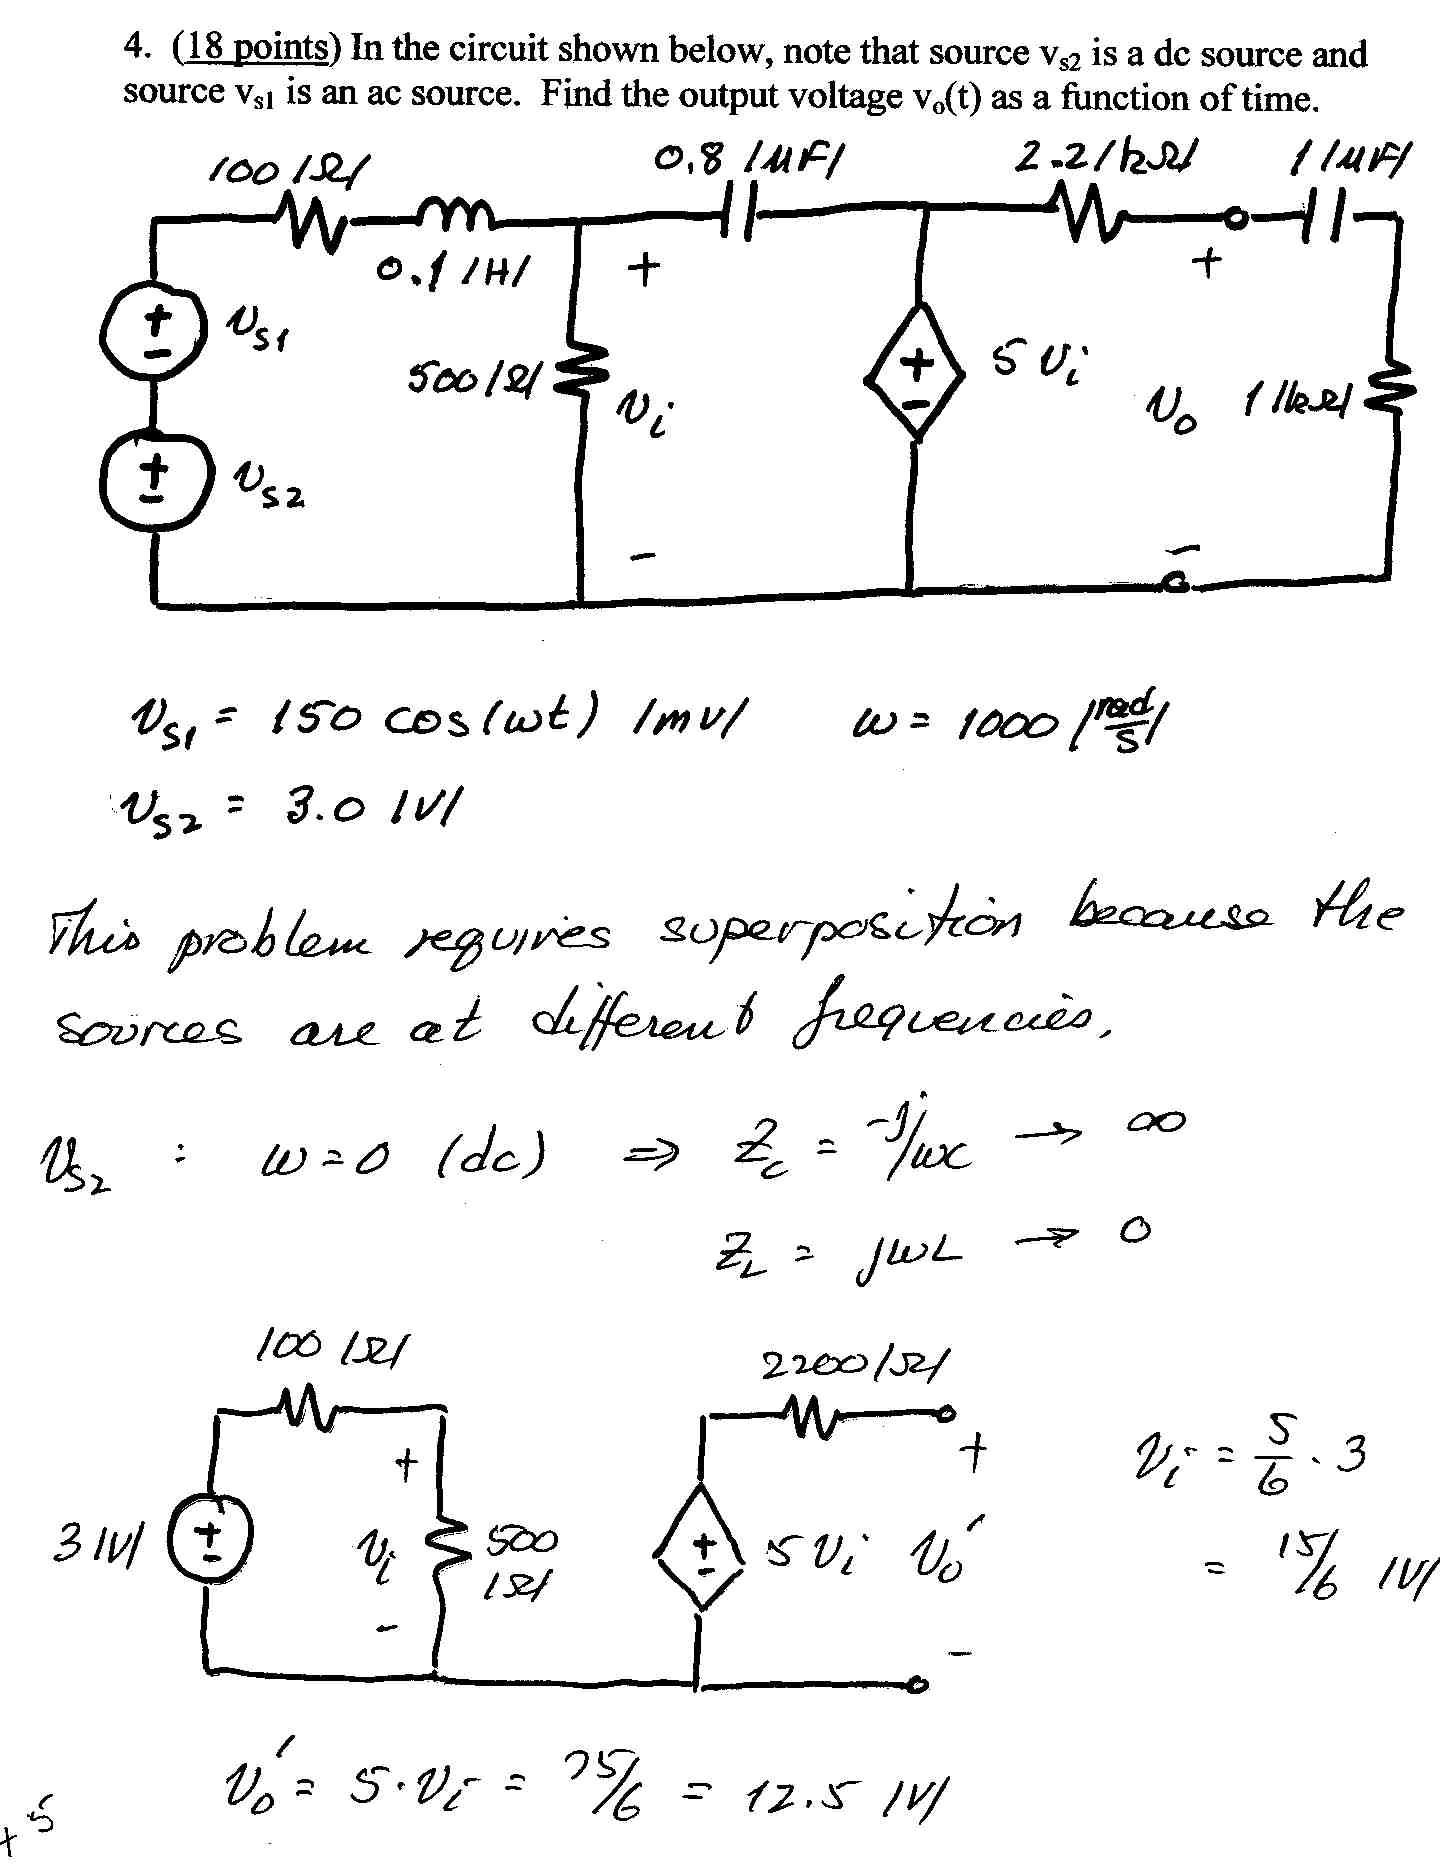 4. (18 points) In the circuit shown below, note that source v_s2 is a dc source and
source v_s1 is an ac source. Find the output voltage v_o(t) as a function of time.
100 /Ω/
0.8 /μF/
2.2 /kΩ/
1 /μF/
0.1 /H/
+
+
+
-
v_s1
500 /Ω/
v_i
+
-
5 v_i
v_o
1 /kΩ/
+
-
v_s2
-
-
v_s1 = 150 cos(ωt) /mV/ ω = 1000 /rad/s/
v_s2 = 3.0 /V/
This problem requires superposition because the
sources are at different frequencies.
v_s2 : ω=0 (dc) ⇒ Z_c = -j/ωC → ∞
Z_L = jωL → 0
100 /Ω/
2200 /Ω/
+
+
v_i = 5/6 · 3
3 /V/
+
-
v_i
500
/Ω/
+
-
5 v_i
v_o'
= 15/6 /V/
-
-
v_o' = 5·v_i = 75/6 = 12.5 /V/
+5